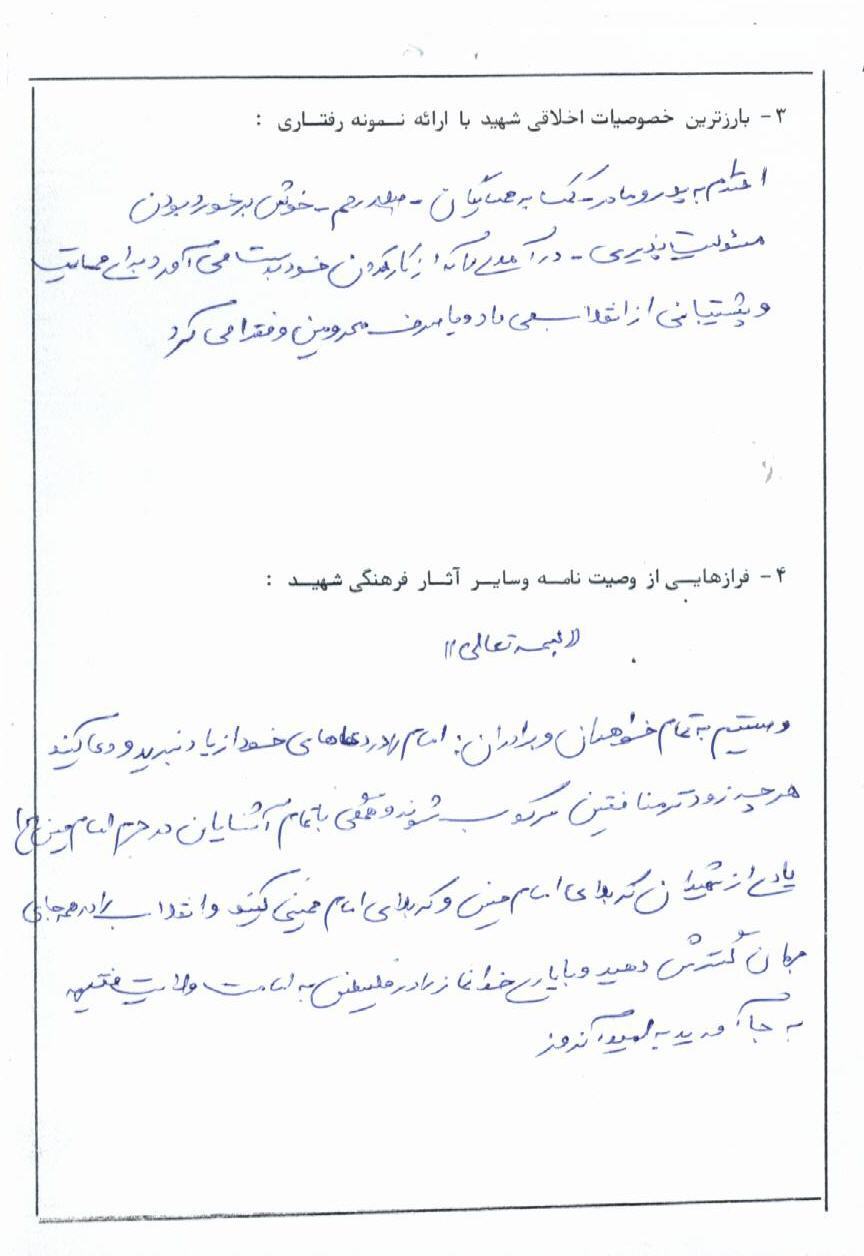 ۳- بارزترین خصوصیات اخلاقی شهید با ارائه نمونه رفتاری :
احترام به پدر و مادر - کمک به همسایگان - صله رحم - خوش برخورد بودن
مسئولیت پذیری - درآمدی را که از کار کردن خود بدست می آورد برای حمایت
و پشتیبانی از انقلاب می داد و یا صرف محرومین و فقرا می کرد
۴- فرازهایی از وصیت نامه وسایر آثار فرهنگی شهید :
((بسمه تعالی))
وصیتم به تمام خواهران و برادران: امام را در دعاهای خود از یاد نبرید و دعا کنید
هر چه زودتر منافقین سرکوب شوند و با تمام آشنایان در حرم امام حسین (ع)
یادی از شهیدان کربلای امام حسین و کربلای امام خمینی کنید و انقلاب را در همه جای
جهان گسترش دهید و با یاری خدا نماز را در فلسطین به امامت ولایت فقیه
به جا آورید به امید آن روز